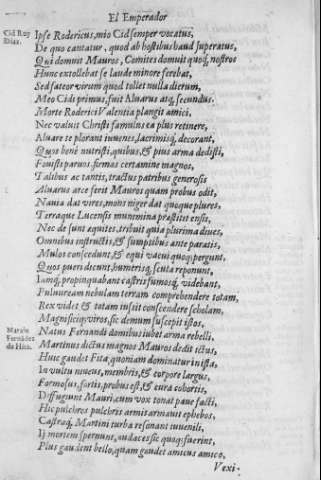 El Emperador
Cid Ruy
Diaz.
Ipse Rodericus, mio Cid semper vocatus,
De quo cantatur, quod ab hostibus haud superatus,
Qui domuit Mauros, Comites domuit quoq; nostros
Hunc extollebat se laude minore ferebat,
Sed fateor virum quod tollet nulla dierum,
Meo Cidi primus, fuit Aluarus atq; secundus.
Morte Roderici Valentia plangit amici,
Nec valuit Christi famulus ea plus retinere,
Aluare te plorant iuuenes, lacrimisq; decorant,
Quos bene nutristi, quibus, & pius arma dedisti,
Fouisti paruos, firmas certamine magnos,
Talibus ac tantis, tractus patribus generosis
Aluarus arce ferit Mauros quam probus odit,
Nauia dat vires, mons niger dat quoque plures,
Terraque Lucensis munimina præstitet ensis,
Nec de sunt equites, tribuit quia plurima diues,
Omnibus instructis, & sumptibus ante paratis,
Mulos conscendunt, & equi vacui quoq; pergunt,
Quos pueri decunt, humerisq; scuta reponunt,
Iamq; propinquabant castris fumosq; videbant,
Fuluuream nebulam terram comprehendere totam,
Rex videt & totam iussit conscendere scholam,
Magnificisq; viros, sic demum suscepit istos,
Martin
Fernãdez
de Hita.
Natus Fernandi domibus iubet arma rebelli,
Martinus dictus magnos Mauros dedit ictus,
Huic gaudet Fita quoniam dominatur in ista,
In vultu niueus, membris, & corpore largus,
Formosus, fortis, probus est, & cura cohortis,
Diffugiunt Mauri, cum vox tonat paue facti,
Hic pulchros pulchris armis armauit ephebos,
Castraq; Martini turba resonant iuuenili,
Ij mortem spernunt, audaces sic quoq; fuerint,
Plus gaudent bello, quam gaudet amicus amico,
Vexi-